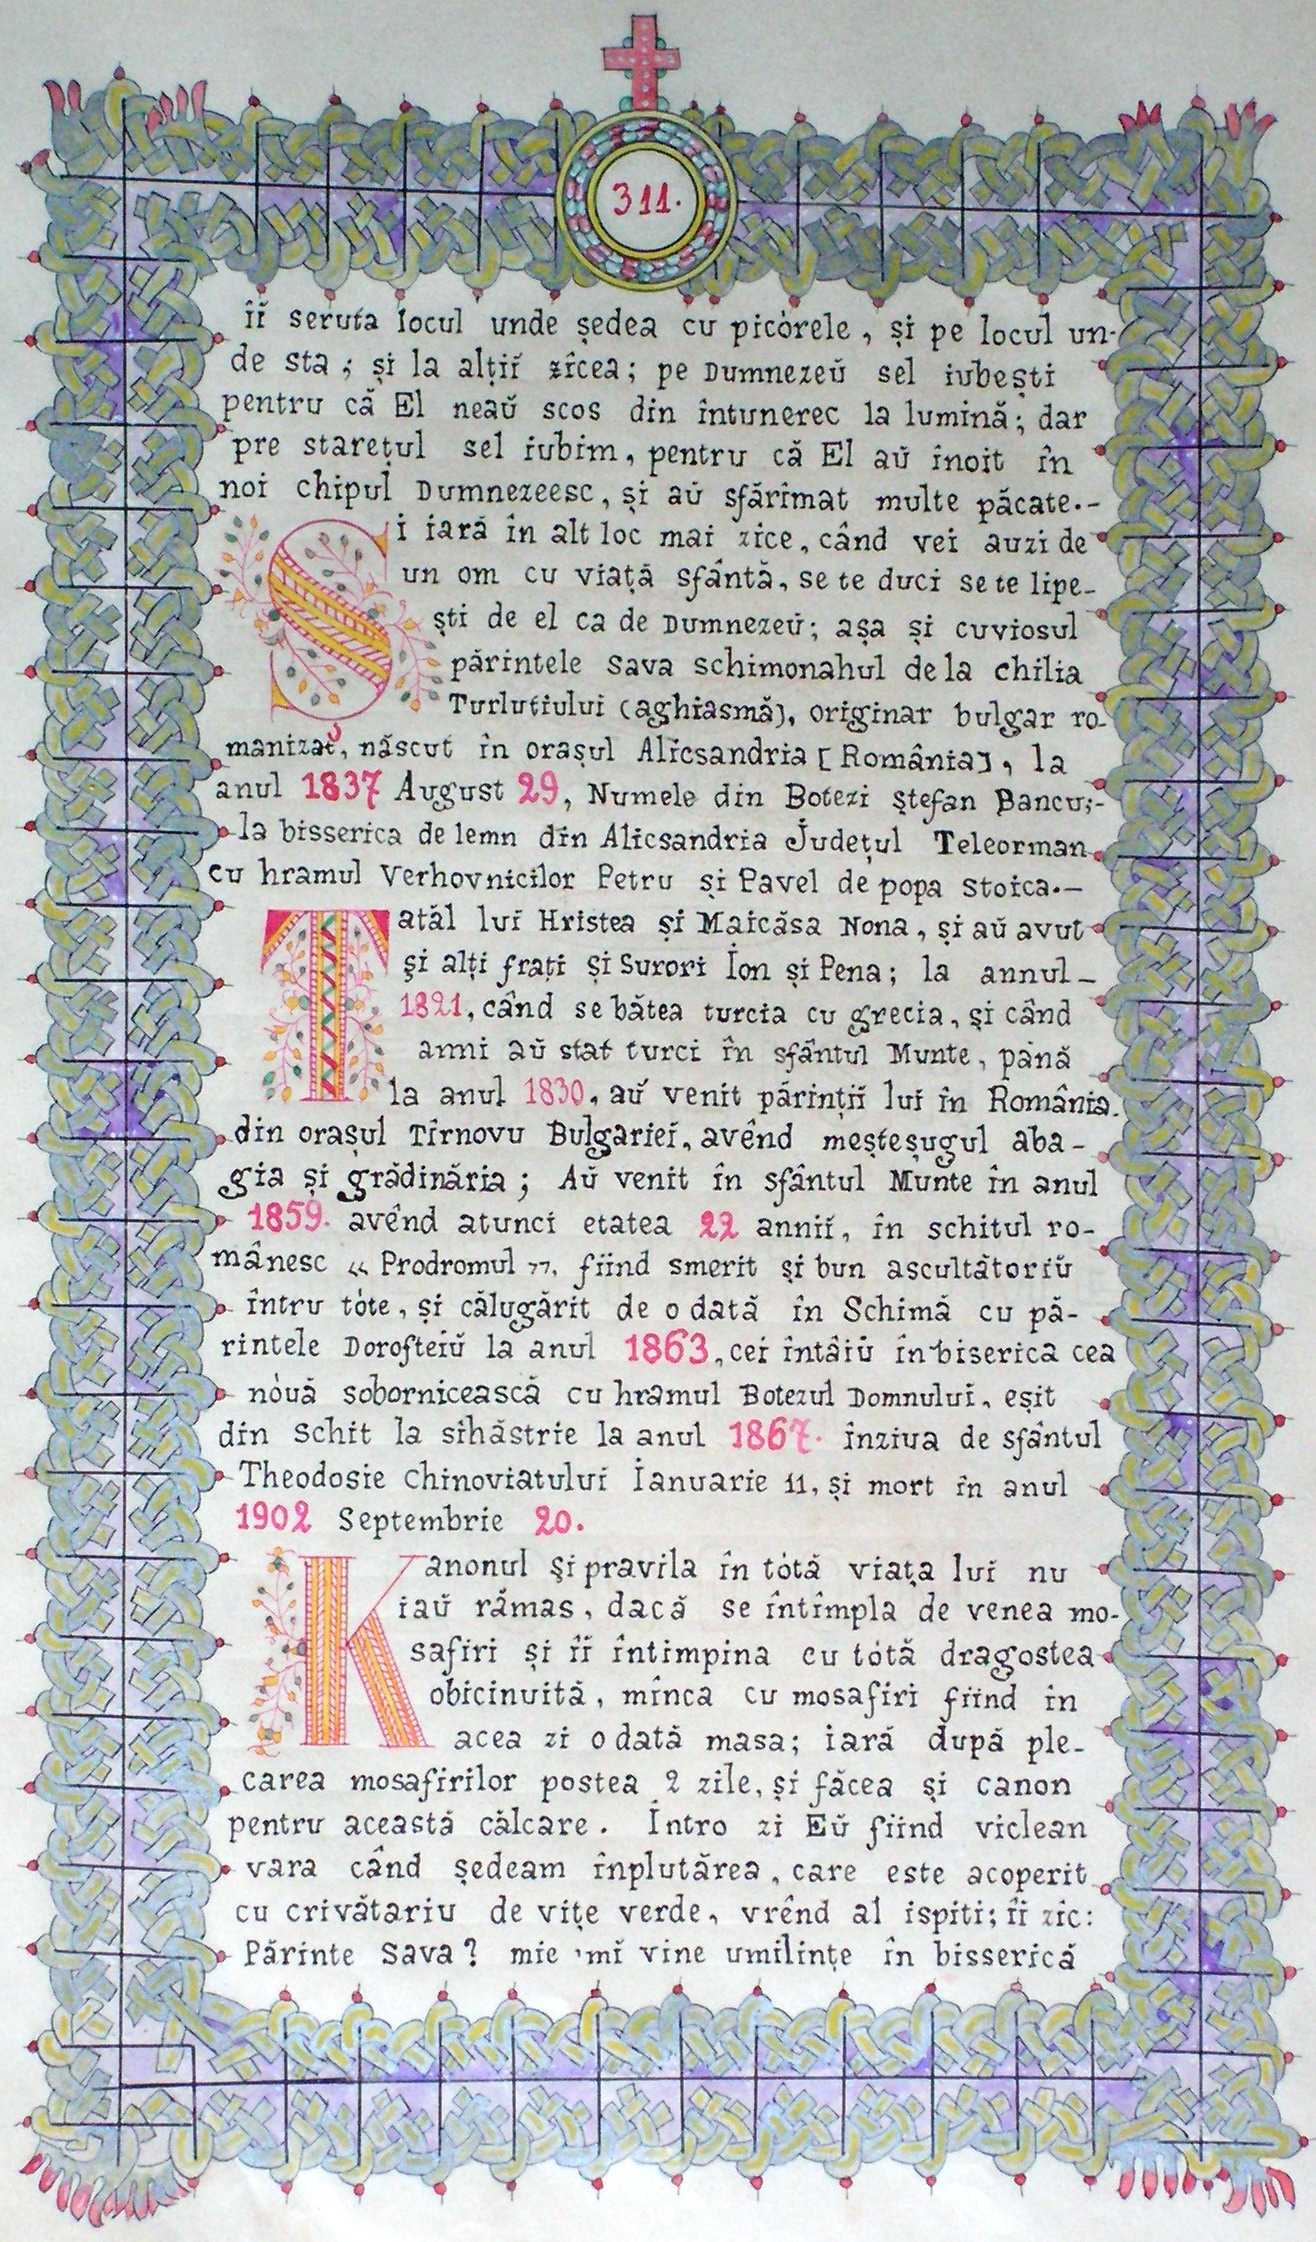 311.
îĭ seruta locul unde ședea cu picòrele, și pe locul un-
de sta; și la alțiĭ zicea; pe Dumnezeŭ sel iubești
pentru că El neaŭ scos din întunerec la lumină; dar
pre starețul sel iubim, pentru că El aŭ înoit în
noi chipul Dumnezeesc, și aŭ sfărîmat multe păcate.-
Și iară în alt loc mai zice, când vei auzi de
un om cu viață sfântă, se te duci se te lipe-
ști de el ca de Dumnezeŭ; așa și cuviosul
părintele Sava schimonahul dela chilia
Turlutiului (aghiasmă), originar bulgar ro-
manizat, născut în orașul Alicsandria [România], la
anul 1837 August 29, Numele din Botezi Ștefan Bancu;-
la bisserica de lemn din Alicsandria Județul Teleorman
cu hramul Verhovnicilor Petru și Pavel de popa Stoica.-
Tatăl lui Hristea și Maicăsa Nona, și aŭ avut
și alți frați și Surori Ion și Pena; la annul-
1821, când se bătea turcia cu grecia, și când
anni aŭ stat turci în sfântul Munte, până
la anul 1830, aŭ venit părințiĭ lui în România
din orașul Tîrnovu Bulgariei, avênd meșteșugul aba-
gia și grădinăria; Aŭ venit în sfântul Munte în anul
1859. avênd atunci etatea 22 anniĭ, în schitul ro-
mânesc „Prodromul”, fiind smerit și bun ascultătoriŭ
întru tòte, și călugărit de odată în Schimă cu pă-
rintele Dorofteiŭ la anul 1863, cei întâiŭ în biserica cea
nòuă sobornicească cu hramul Botezul Domnului, eșit
din Schit la sihăstrie la anul 1867. înziua de sfântul
Theodosie Chinoviatului Ianuarie 11, și mort în anul
1902 Septembrie 20.
Kanonul și pravila în tòtă viața lui nu
iaŭ rămas, dacă se întîmpla de venea mo-
safiri și îĭ întimpina cu tòtă dragostea
obicinuită, mînca cu mosafiri fiind în
acea zi odată masa; iară după ple-
carea mosafirilor postea 2 zile, și făcea și canon
pentru această călcare. Intro zi Eŭ fiind viclean
vara când ședeam înplutărea, care este acoperit
cu crivătariu de vițe verde, vrênd al ispiti; îĭ zic:
Părinte Sava? mie 'mĭ vine umilințe în bisserică